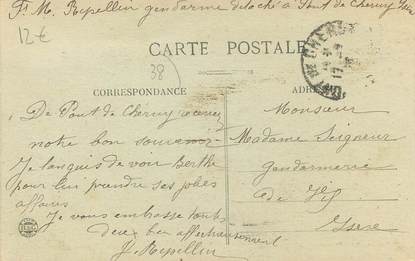 F. M. Repellin gendarme détaché à Pont de Cheruy Isère
12€
CARTE POSTALE
38
CORRESPONDANCE
ADRESSE
De Pont de Cheruy recevez
notre bon souvenir
Je languis de voir Berthe
pour lui prendre ses jolies
affaires
Je vous embrasse tous
deux bien affectueusement
F. Repellin
Monsieur
Madame Seigneur
Gendarmerie
de
Isère